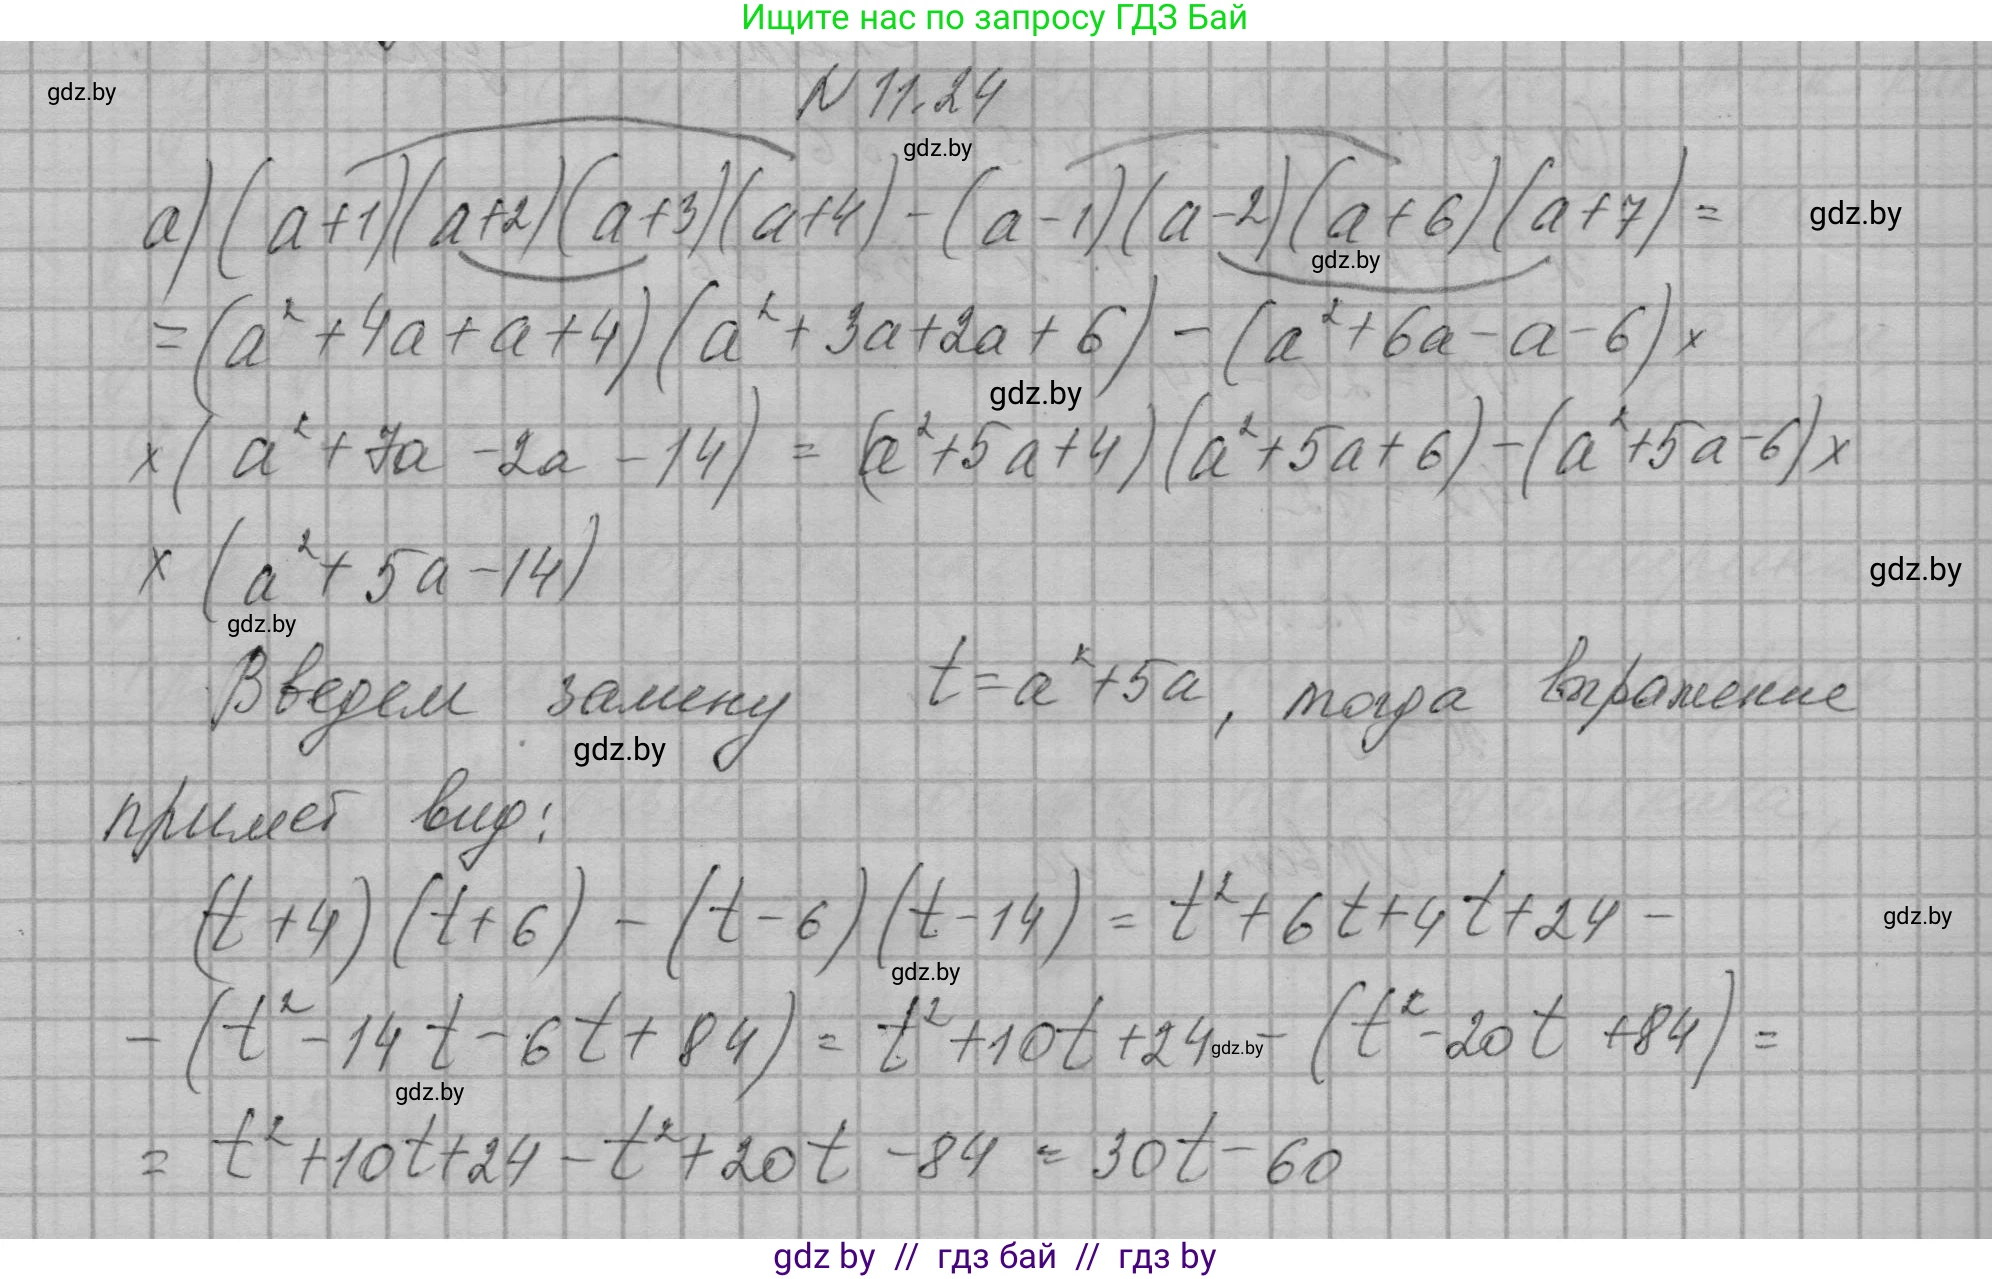 Ищите нас по запросу ГДЗ Бай
gdz.by
N 11.24
gdz.by
а) (a+1)(a+2)(a+3)(a+4) - (a-1)(a-2)(a+6)(a+7) =
gdz.by
gdz.by
= (a² + 4a + a + 4) (a² + 3a + 2a + 6) - (a² + 6a - a - 6) ×
gdz.by
× (a² + 7a - 2a - 14) = (a² + 5a + 4) (a² + 5a + 6) - (a² + 5a - 6) ×
× (a² + 5a - 14)
gdz.by
gdz.by
Введем замену t = a² + 5a, тогда выражение
gdz.by
примет вид:
(t + 4) (t + 6) - (t - 6) (t - 14) = t² + 6t + 4t + 24 -
gdz.by
gdz.by
- (t² - 14t - 6t + 84) = t² + 10t + 24 - (t² - 20t + 84) =
gdz.by
gdz.by
= t² + 10t + 24 - t² + 20t - 84 = 30t - 60
gdz by // гдз бай // гдз by